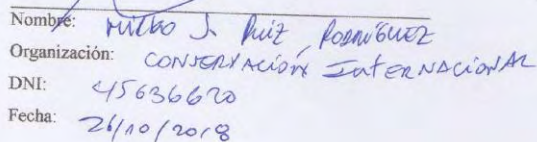 Nombre: MILGO J. RUIZ RODRÍGUEZ
Organización: CONSERVACIÓN INTERNACIONAL
DNI: 45636620
Fecha: 26/10/2018